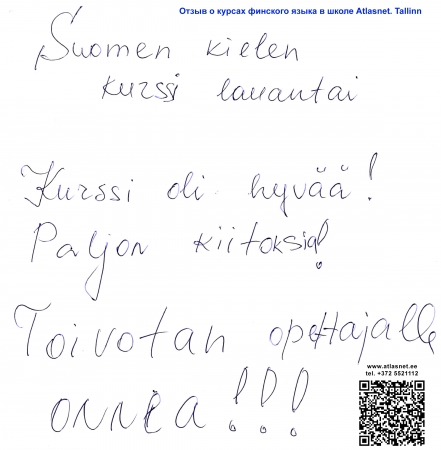 Отзыв о курсах финского языка в школе Atlasnet. Tallinn
Suomen kielen
kurssi lauantai
Kurssi oli hyvää!
Paljon kiitoksia!
Toivotan opettajalle
onnea!!!
www.atlasnet.ee
tel. +372 5521112